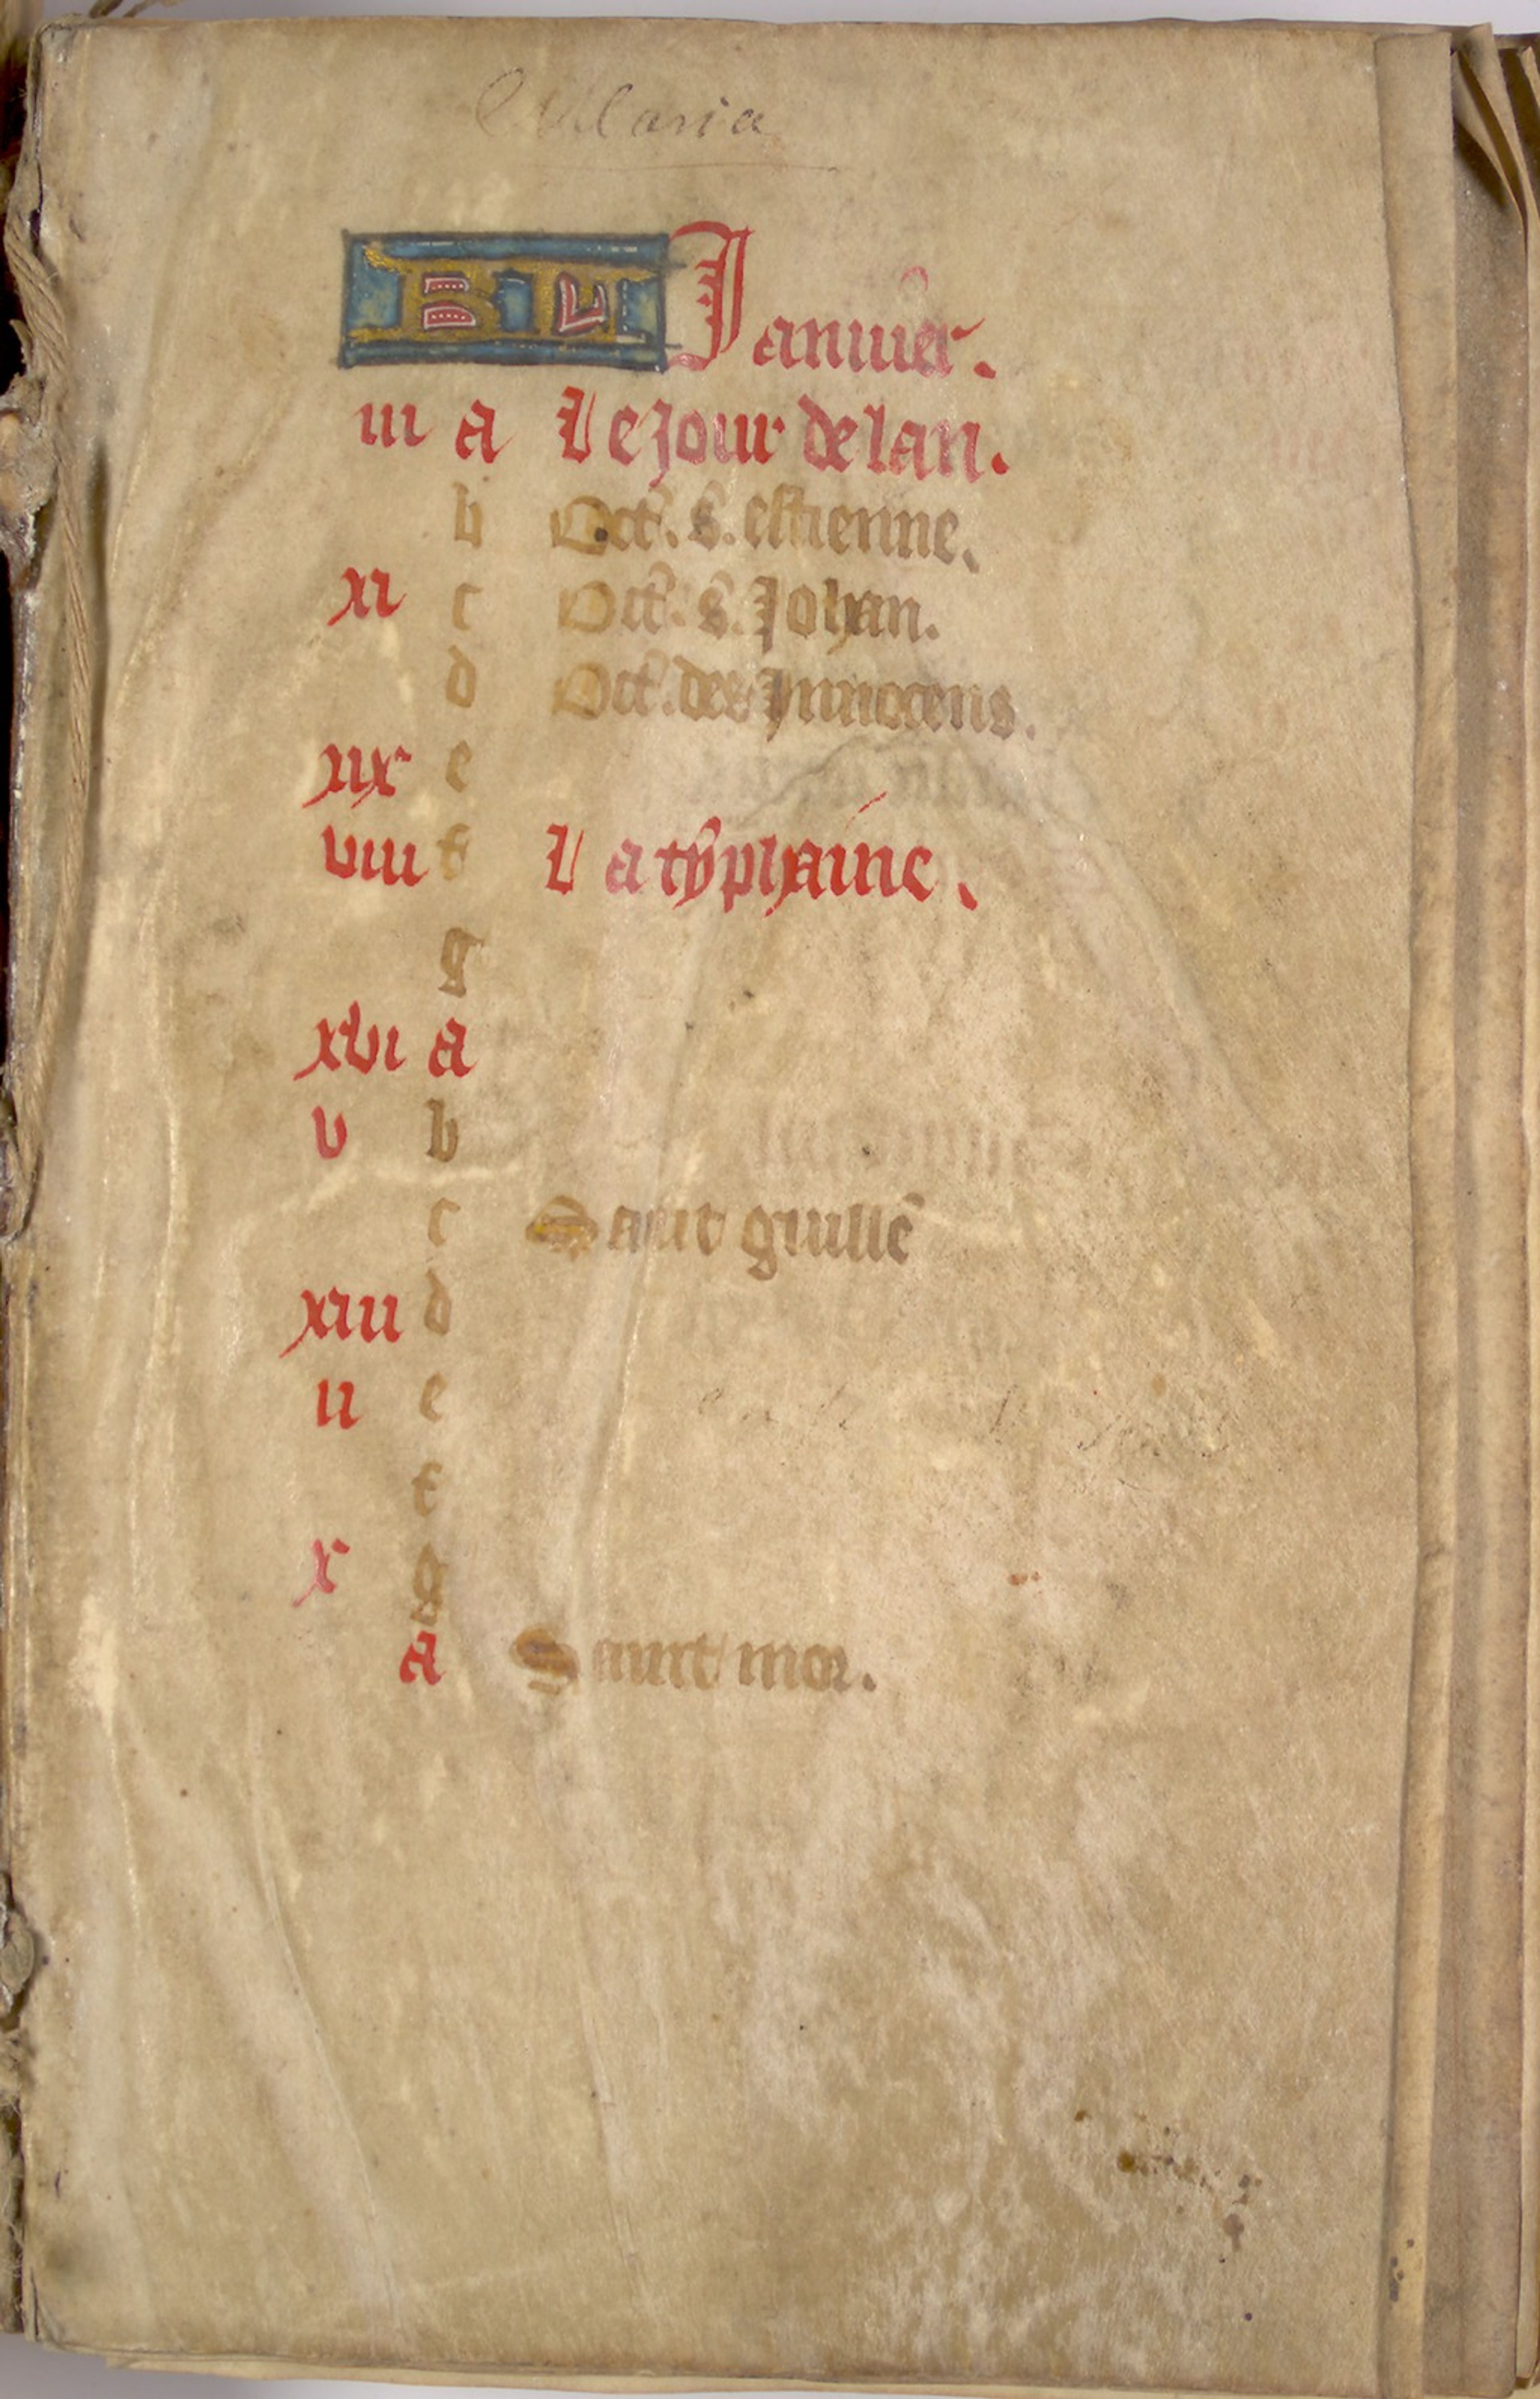 Maria
KL Januier.
iii A Le jour de lan.
b Oct. s. estienne.
xi c Oct. s. Johan.
d Oct. des Innocens.
xix e
viii f La typhaine.
g
xvi A
v b
c Saint guille
xiii d
ii e
f
x g
A Sainct mor.